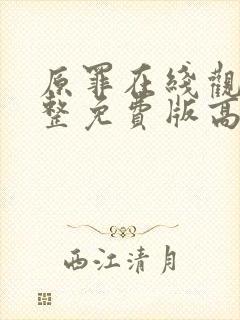 原罪在綫觀
整免費版高
西江清月